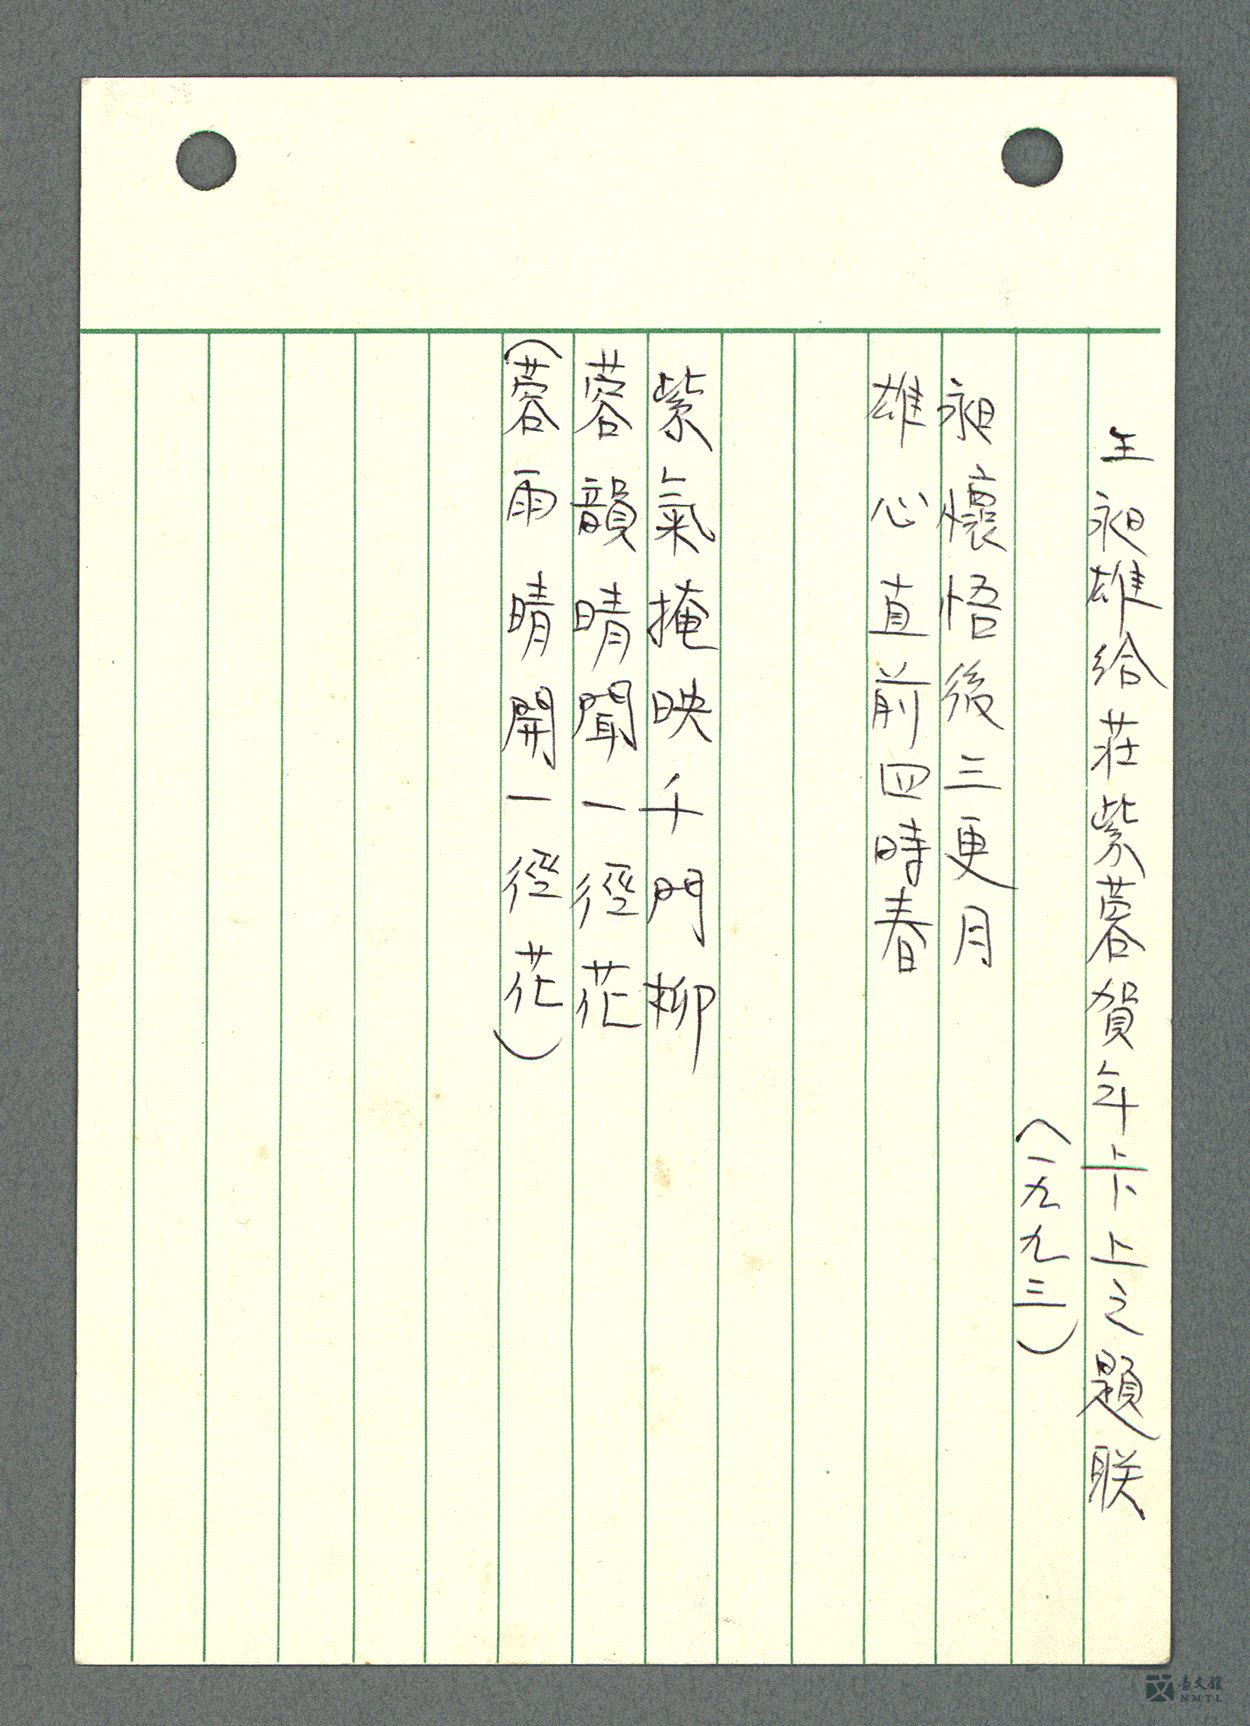 王昶雄給莊紫蓉賀年卡上之題联
(一九九三)
昶懷悟後三更月
雄心直前四時春
紫氣掩映千門柳
蓉韻晴聞一徑花
(蓉雨晴開一徑花)
臺文館
NMTL